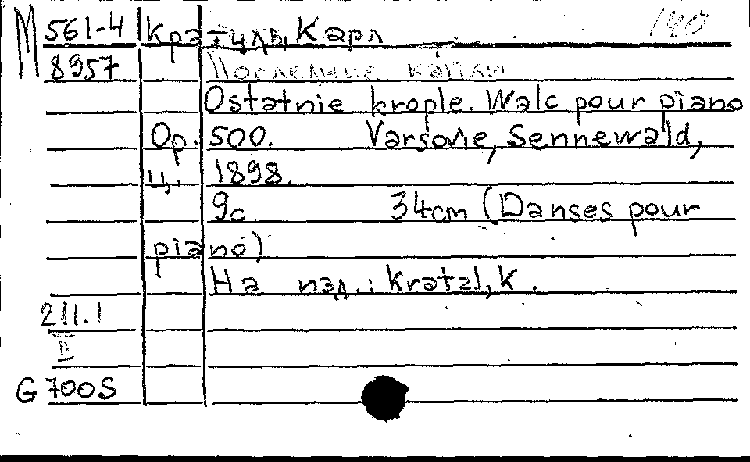 М 561-4 Кратил, Карл 190
8957 Последние капли
Ostatnie krople. Walc pour piano
Op. 500. Varsovie, Sennewald,
ц. 1898.
9c 34cm (Danses pour
piano)
На изд.: Kratzl, K.
211.1
II
G 700S